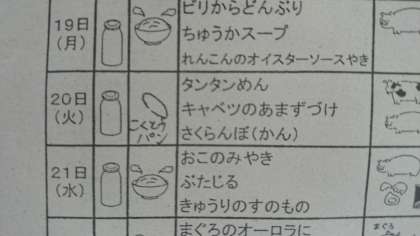 19日
(月)
ピリからどんぶり
ちゅうかスープ
れんこんのオイスターソースやき
20日
(火)
こくとう
パン
タンタンめん
キャベツのあまずづけ
さくらんぼ(かん)
21日
(水)
おこのみやき
ぶたじる
きゅうりのすのもの
まぐろのオーロラに
まぐろ